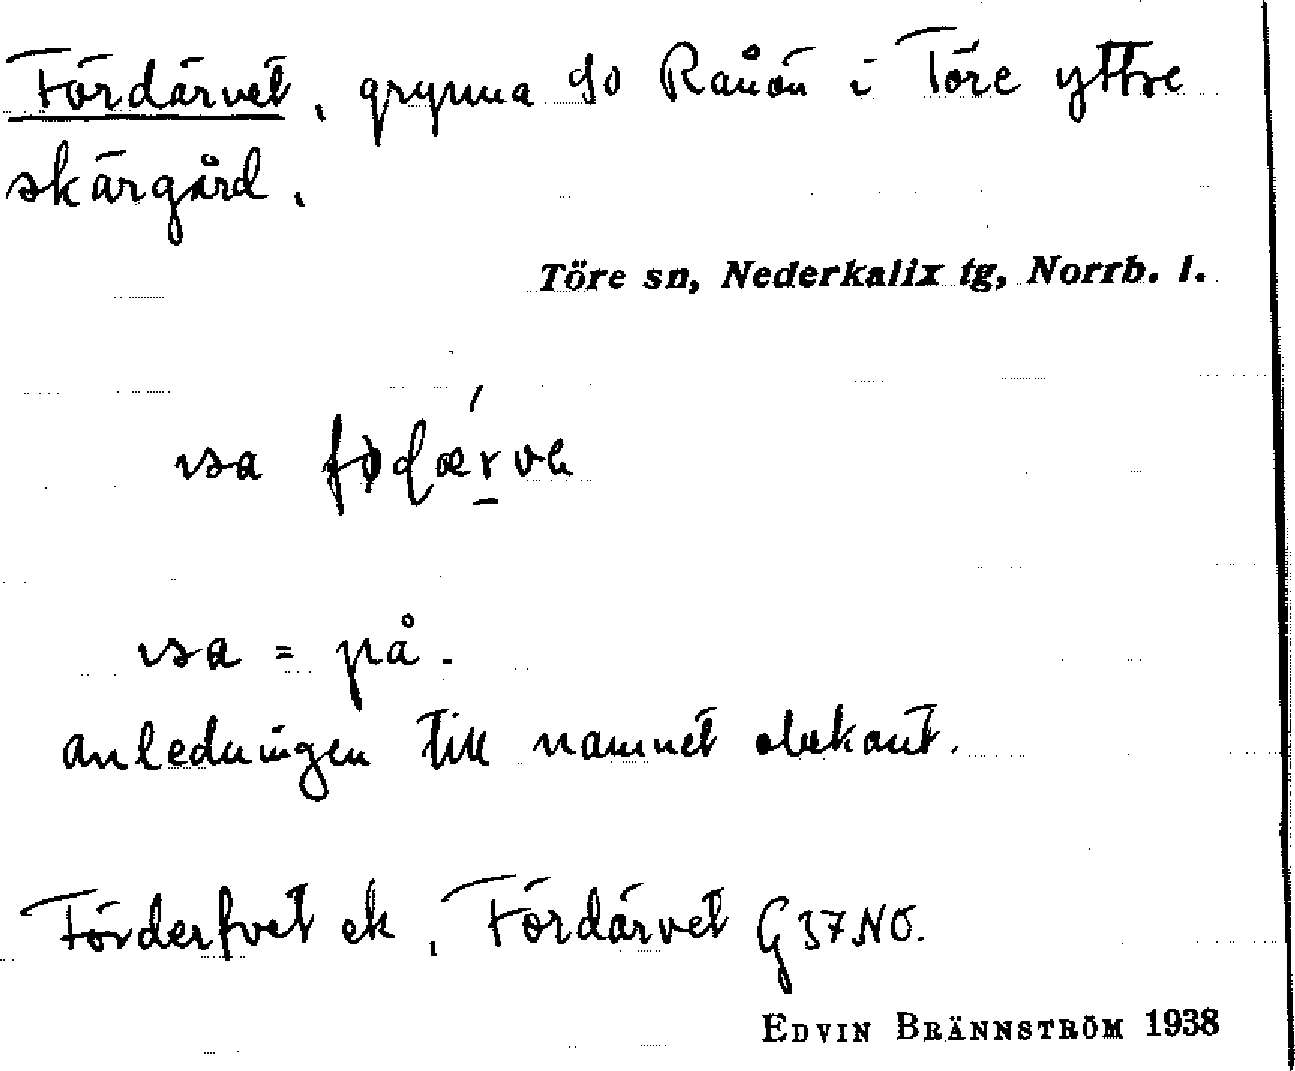 Fördärvet, grynna So Rånön i Töre yttre
skärgård.
Töre sn, Nederkalix tg, Norrb. l.
isa
isa = på.
anledningen till namnet obekant.
Förderfvet ek, Fördärvet G 37 NO.
EDVIN BRÄNNSTRÖM 1938